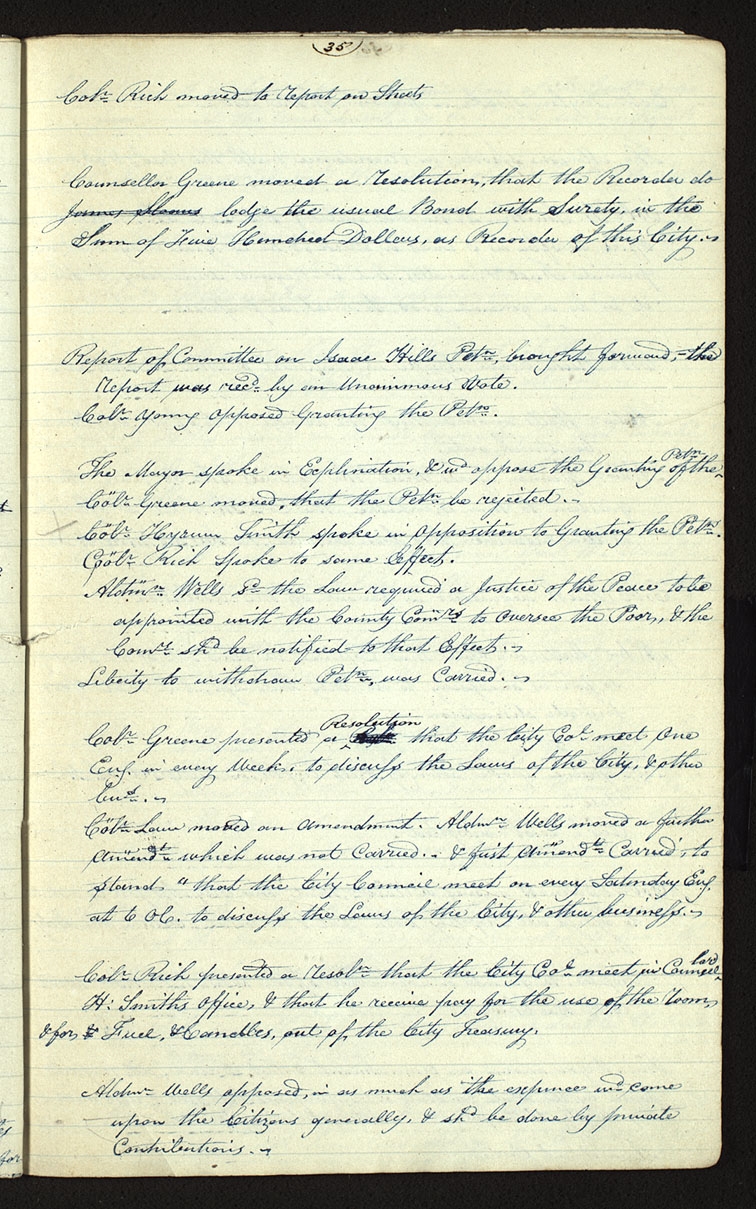 35
Colr. Rich moved to report on Streets
Counsellor Greene moved a resolution, that the Recorder do
James Sloans lodge the usual Bond with Surety, in the
Sum of Five Hundred Dollars, as Recorder of this City.
Report of Committee on Isaac Hills Petn. brought forward,- the
report was recd. by an Unanimous Vote.
Colr. Young opposed Granting the Petn.
The Mayor spoke in Explination, & wd. oppose the Granting of the Petn.
Colr. Greene moved, that the Petn. be rejected.
Colr. Hyrum Smith spoke in opposition to Granting the Petn.
Colr. Rich Spoke to same Effect.
Aldmn. Wells sd. the Law required a Justice of the Peace to be
appointed with the County Comrs. to oversee the Poor, & the
Comrs. shd. be notified to that Effect.
Liberty to withdraw Petn., was Carried.
Colr. Greene presented a Resolution that the City Col. meet One
Eng. in every Week, to discuss the Laws of the City, & other
bus.
Colr. Law moved an Amendment. Aldmn. Wells moved a further
Amendt. which was not Carried. & first Amendt. Carried, to
stand "that the City Council meet on every Saturday Eng.
at 6 OC. to discuss the Laws of the City, & other business.
Colr. Rich presented a resoln. that the City Col. meet in Councellor
H: Smiths office, & that he receive pay for the use of the room,
& for Fuel, & Candles, out of the City Treasury.
Aldmn. Wells opposed, in as much as the expence wd. come
upon the Citizens generally, & shd. be done by private
Contributions.